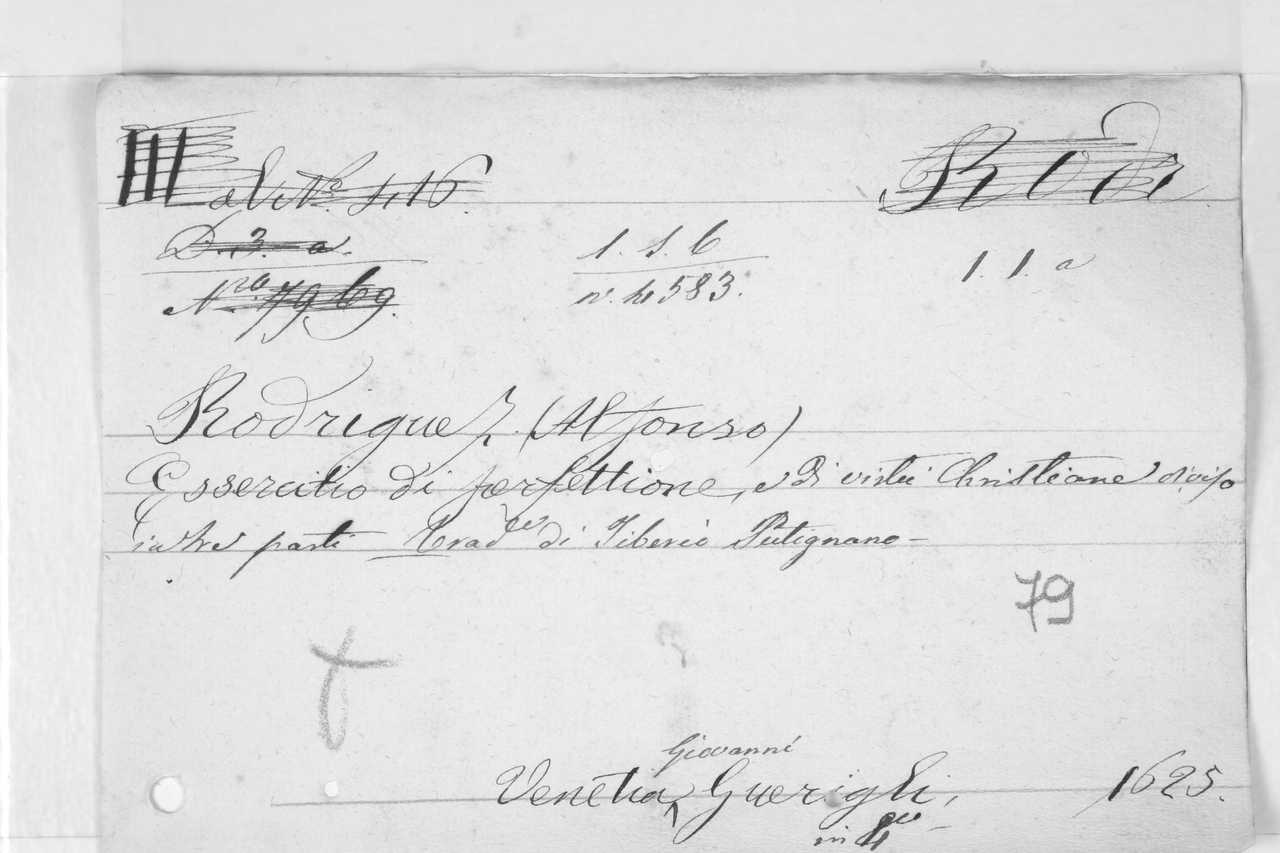 III a Vit. N.° 416. Roda
D. 3. a. 1. 5. 6 1. 1. a
N.ro 7969. n.° 4583.
Rodriguez (Alfonso)
Essercitio di perfettione, e di virtù Christiane diviso
in tre parti Trad.e di Tiberio Putignano —
79
Giovanni
Venetia, Guerigli, 1625.
in 4.to —